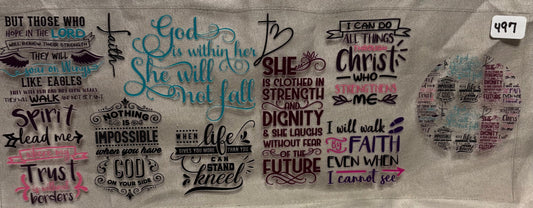 BUT THOSE WHO
HOPE IN THE LORD
WILL RENEW THEIR STRENGTH
THEY WILL
soar on Wings
LIKE EAGLES
THEY WILL WALK AND NOT BE FAINT
Spirit
lead me
Trust
borders
faith
God
is within her
She will
not fall
NOTHING
IS
IMPOSSIBLE
when you have
GOD
ON YOUR SIDE
WHEN
life
GIVES YOU MORE THAN YOU
CAN
STAND
kneel
SHE
IS CLOTHED IN
STRENGTH
AND
DIGNITY
& SHE LAUGHS
WITHOUT FEAR
OF THE
FUTURE
I CAN DO
ALL THINGS
THROUGH
Christ
WHO
STRENGTHENS
ME
I will walk
BY FAITH
EVEN WHEN
I cannot see
497